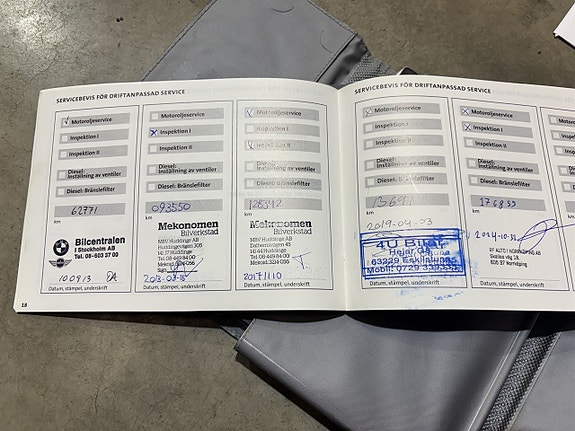 SERVICEBEVIS FÖR DRIFTANPASSAD SERVICE
Motoroljeservice
Inspektion I
Inspektion II
Diesel:
Inställning av ventiler
Diesel: Bränslefilter
62771
km
Bilcentralen
i Stockholm AB
Tel. 08-603 37 00
100913
Datum, stämpel, underskrift
18
Motoroljeservice
Inspektion I
Inspektion II
Diesel:
Inställning av ventiler
Diesel: Bränslefilter
093550
km
Mekonomen
Bilverkstad
MBV Huddinge AB
Tel 08 449 84 00
Sign
Datum, stämpel, underskrift
Motoroljeservice
Inspektion I
Inspektion II
Diesel:
Inställning av ventiler
Diesel: Bränslefilter
128342
km
Mekonomen
Bilverkstad
MBV Huddinge AB
Tel 08 449 84 00
20171110
Datum, stämpel, underskrift
SERVICEBEVIS FÖR DRIFTANPASSAD SERVICE
Motoroljeservice
Inspektion I
Inspektion II
Diesel:
Inställning av ventiler
Diesel: Bränslefilter
km
2019-04-03
4U Bilar
63229 Eskilstuna
Datum, stämpel, underskrift
Motoroljeservice
Inspektion I
Inspektion II
Diesel:
Inställning av ventiler
Diesel: Bränslefilter
176853
km
RF AUTO I NORRKÖPING AB
Skälles väg 18,
605 97 Norrköping
Datum, stämpel, underskrift